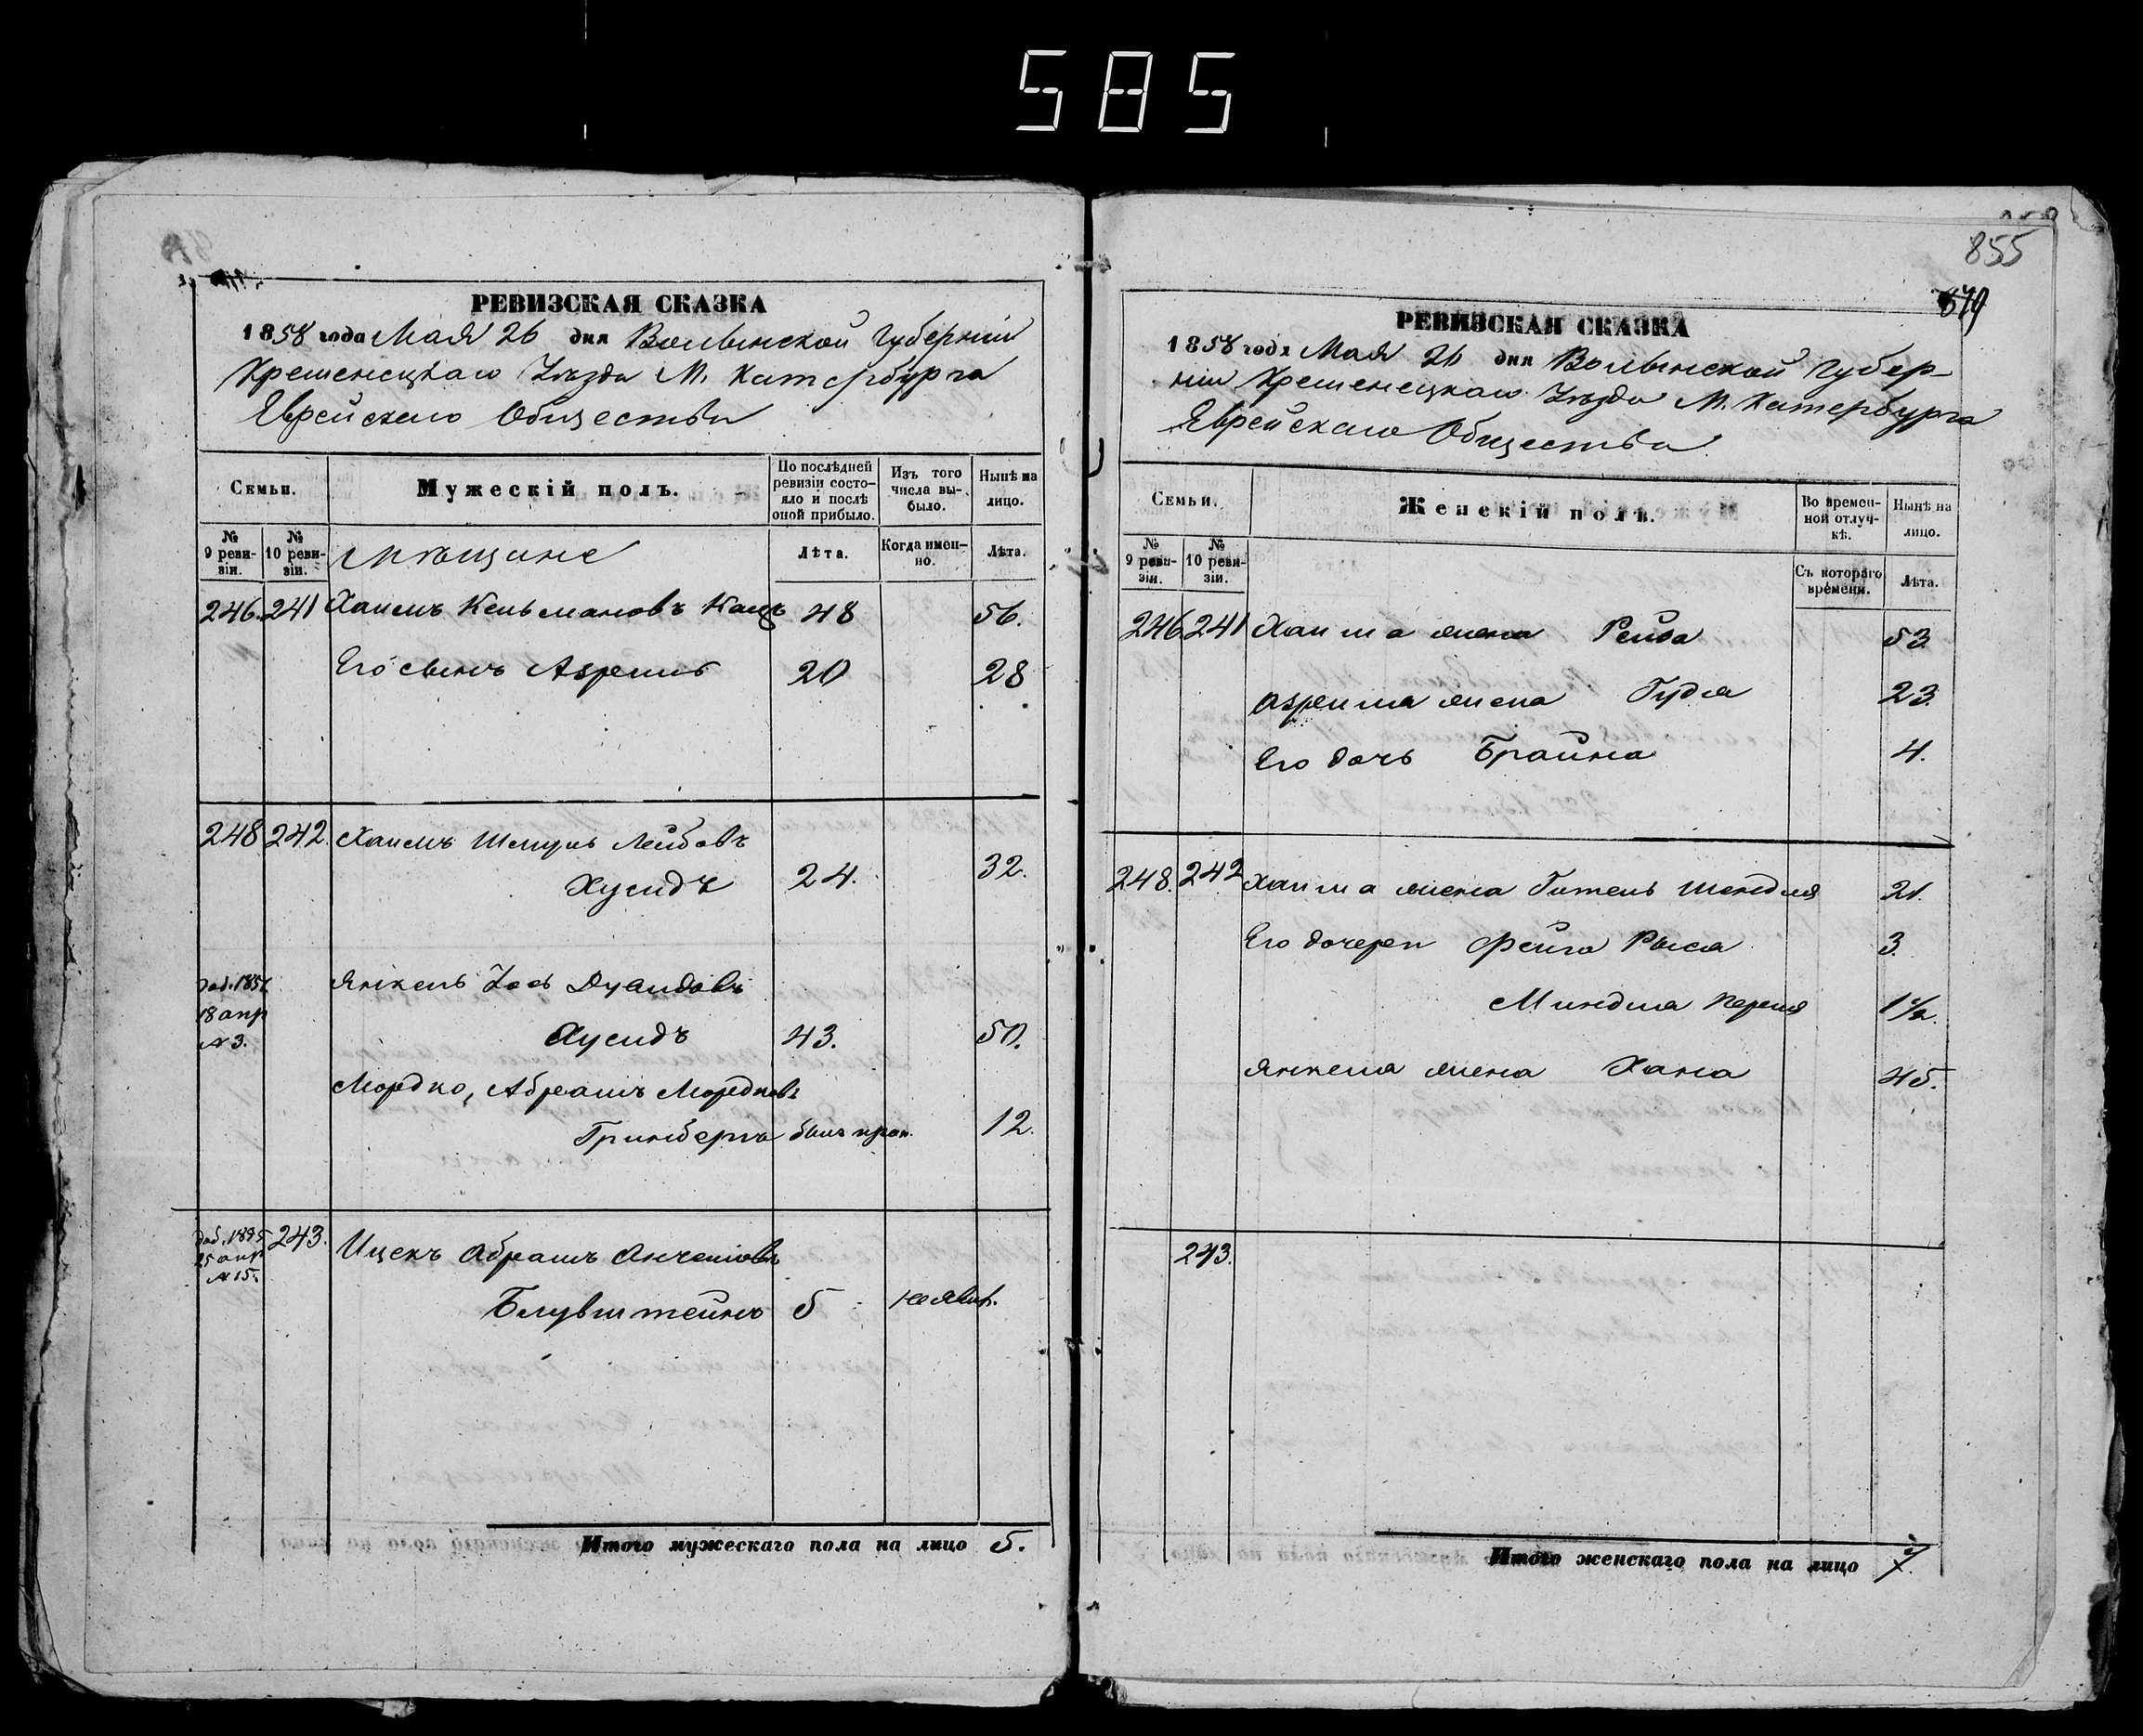 585
РЕВИЗСКАЯ СКАЗКА
1858 года Мая 26 дня Волынской Губерніи
Кременецкаго Уѣзда М. Катербурга
Еврейскаго Общества
Семьи.
Мужескій полъ.
По послѣдней ревизіи состояло и послѣ оной прибыло.
Изъ того числа выбыло.
Нынѣ на лицо.
№ 9 ревизіи.
№ 10 ревизіи.
Мѣщане
Лѣта.
Когда именно.
Лѣта.
246. 241 Хаимъ Кельмановъ Кацъ 48 56.
Его сынъ Азрениль 20 28
248 242. Хаимъ Шмуль Лейбовъ
Хусидъ 24. 32.
18 апр
№ 3.
Янкель Іосъ Дувидовъ
Хусидъ 43. 50.
Мордко, Абрамъ Мордковъ
Гринбергъ былъ проп. 12.
доб. 1895
25 апр
№ 15.
243. Ицекъ Абрамъ Анчеловъ
Блувштейнъ 5 неявив.
Итого мужескаго пола на лицо 5.
855
879
РЕВИЗСКАЯ СКАЗКА
1858 года Мая 26 дня Волынской Губер-
ніи Кременецкаго Уѣзда М. Катербурга
Еврейскаго Общества
Семьи.
Женскій полъ.
Во временной отлучкѣ.
Нынѣ на лицо.
№ 9 ревизіи.
№ 10 ревизіи.
Съ котораго времени.
Лѣта.
246 241 Хаима жена Рейза 53.
жена Гудя 23.
Его дочь Брайна 4.
248. 242 Хаима жена Гитель Шендля 21.
Его дочери Фейга Рыся 3.
Миндля Перля 1 1/2.
Янкеля жена Хана 45.
243.
Итого женскаго пола на лицо 7.